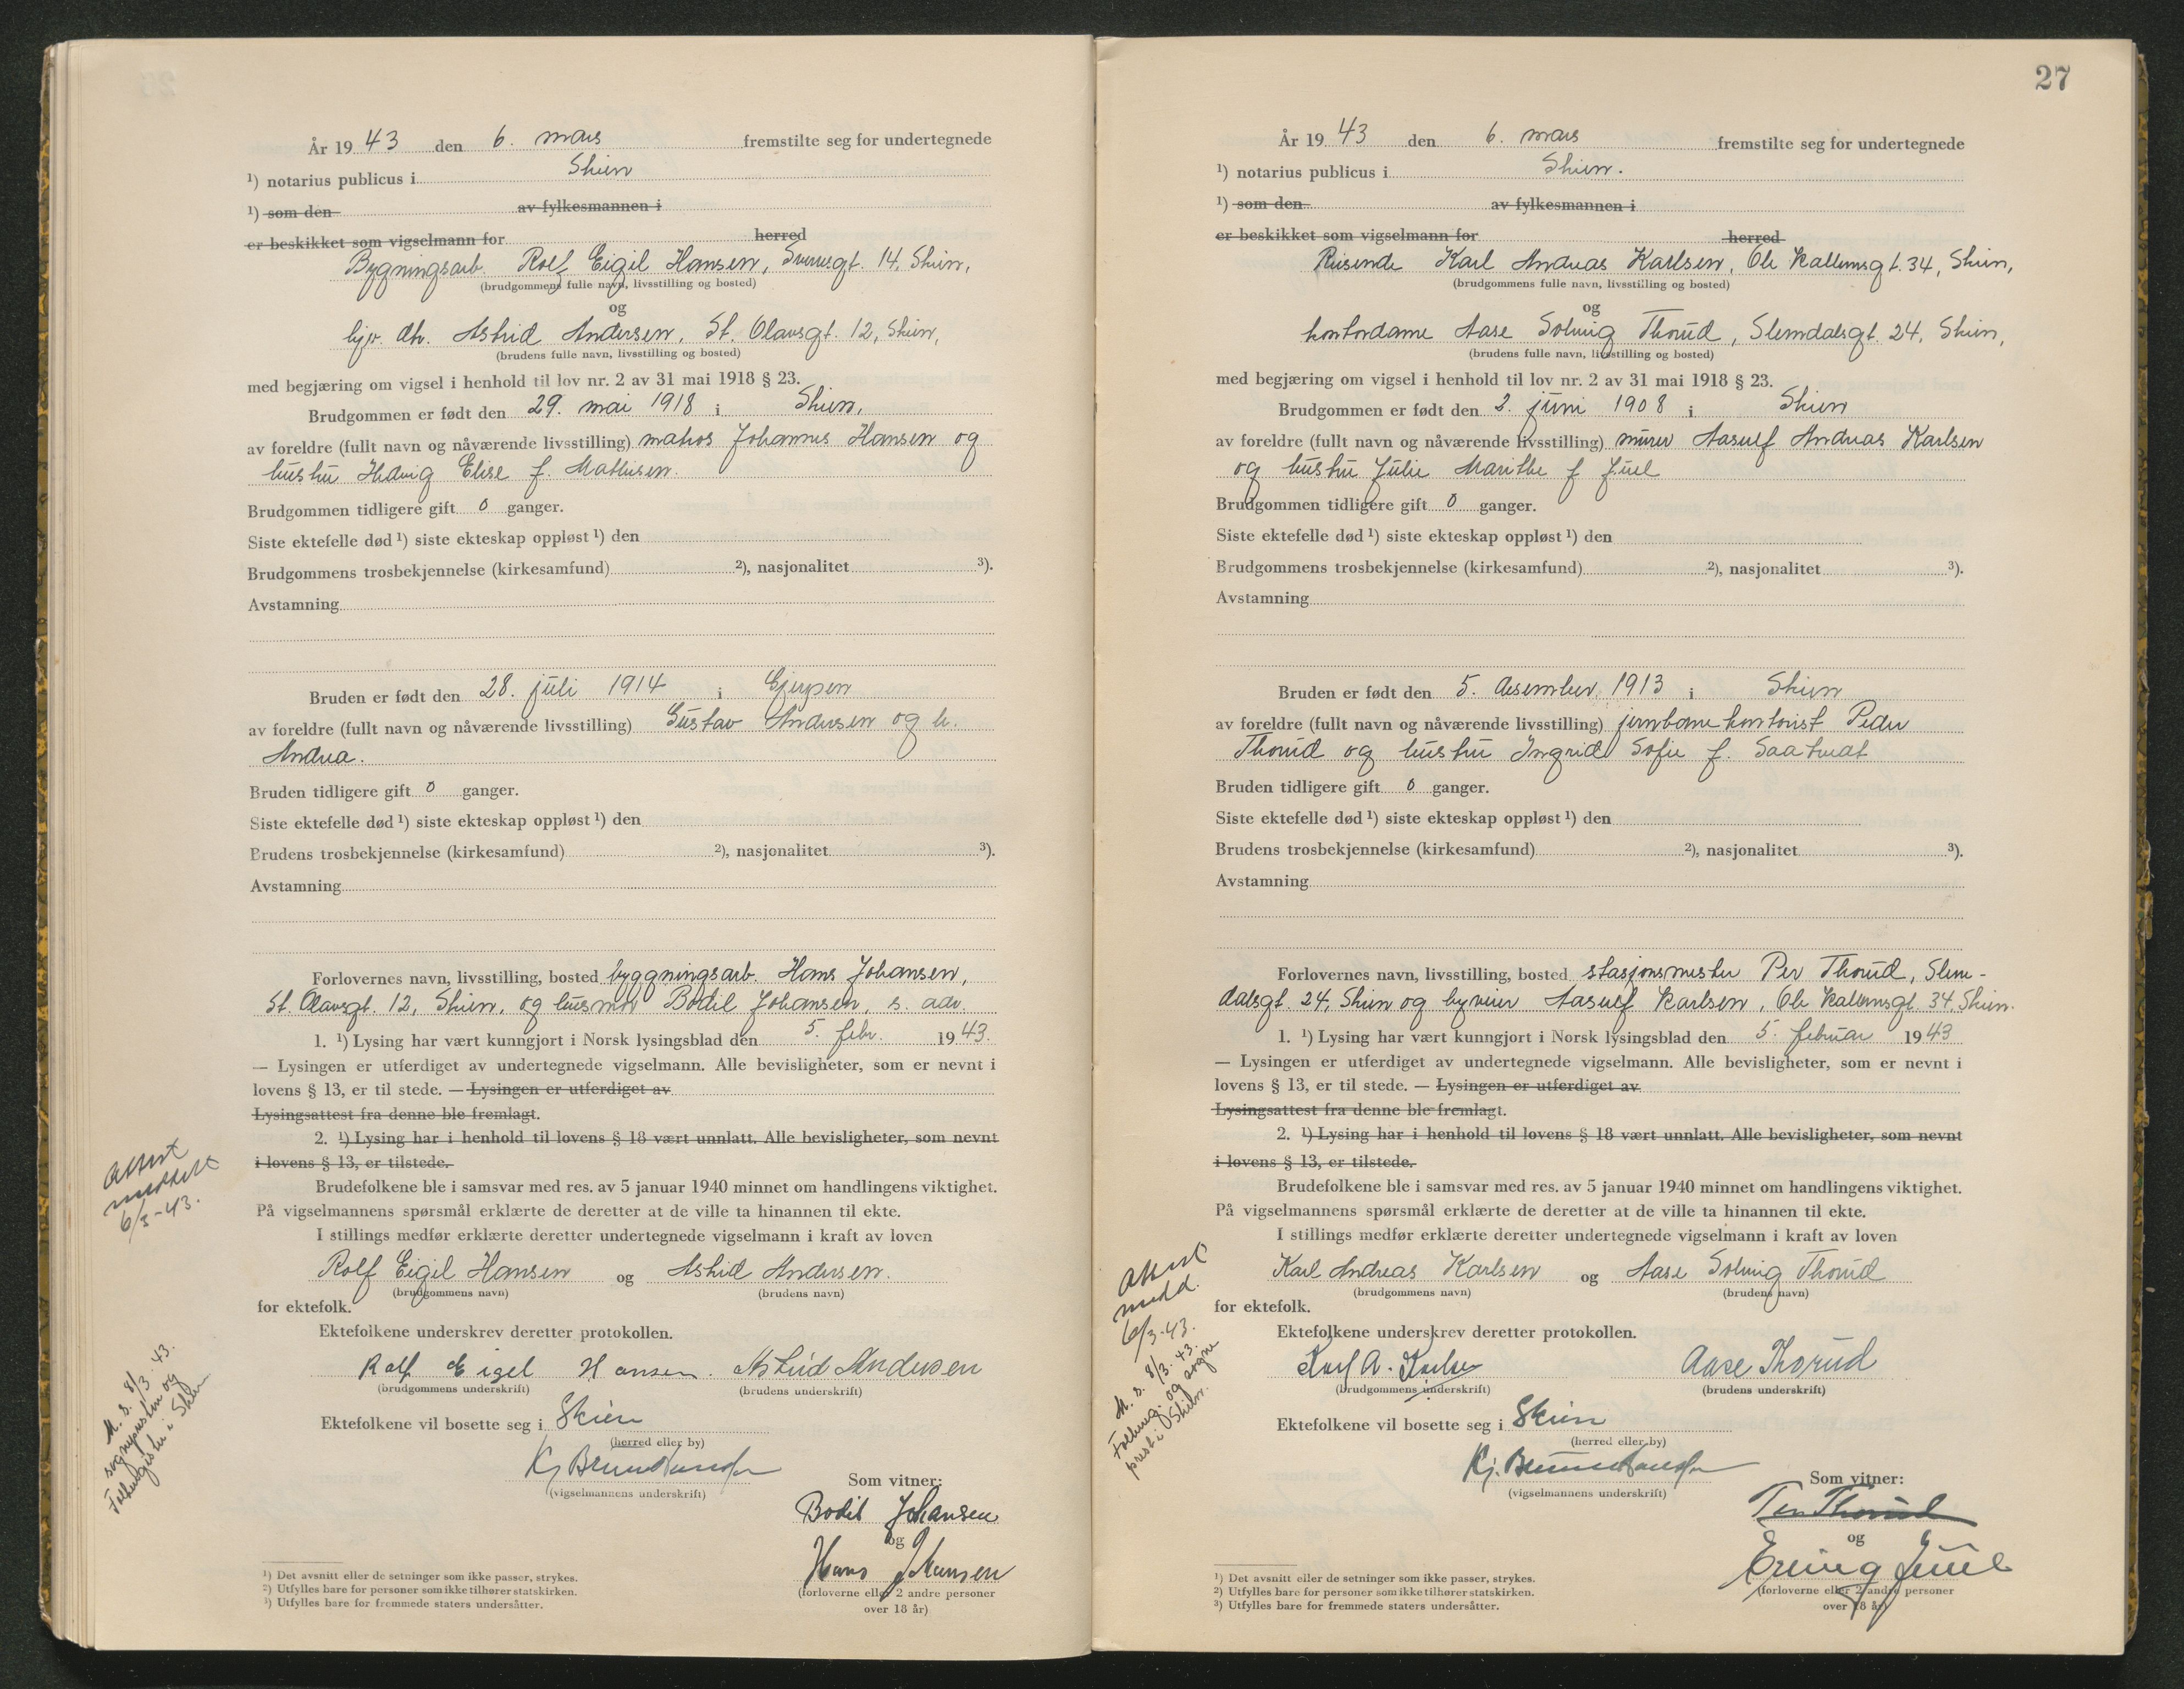 År 1943 den 6. mars fremstilte seg for undertegnede
¹) notarius publicus i Skien
¹) som den av fylkesmannen i
er beskikket som vigselmann for herred
Bygningsarb. Rolf Eigil Hansen, Sverresgt. 14, Skien,
(brudgommens fulle navn, livsstilling og bosted)
og
hjv. dtr. Astrid Andersen, St. Olavsgt. 12, Skien,
(brudens fulle navn, livsstilling og bosted)
med begjæring om vigsel i henhold til lov nr. 2 av 31 mai 1918 § 23.
Brudgommen er født den 29. mai 1918 i Skien,
av foreldre (fullt navn og nåværende livsstilling) matros Johannes Hansen og
hustru Hedvig Elise f. Mathisen.
Brudgommen tidligere gift 0 ganger.
Siste ektefelle død ¹) siste ekteskap oppløst ¹) den
Brudgommens trosbekjennelse (kirkesamfund) ²), nasjonalitet ³).
Avstamning
Bruden er født den 28. juli 1914 i Gjerpen
av foreldre (fullt navn og nåværende livsstilling) Gustav Andersen og h.
Andrea.
Bruden tidligere gift 0 ganger.
Siste ektefelle død ¹) siste ekteskap oppløst ¹) den
Brudens trosbekjennelse (kirkesamfund) ²), nasjonalitet ³).
Avstamning
Forlovernes navn, livsstilling, bosted byggningsarb. Hans Johansen,
St. Olavsgt. 12, Skien, og husmor Bodil Johansen, s. adr.
1. ¹) Lysing har vært kunngjort i Norsk lysingsblad den 5. febr. 1943.
— Lysingen er utferdiget av undertegnede vigselmann. Alle bevisligheter, som er nevnt i
lovens § 13, er til stede. — Lysingen er utferdiget av
Lysingsattest fra denne ble fremlagt.
2. ¹) Lysing har i henhold til lovens § 18 vært unnlatt. Alle bevisligheter, som nevnt
i lovens § 13, er tilstede.
Brudefolkene ble i samsvar med res. av 5 januar 1940 minnet om handlingens viktighet.
På vigselmannens spørsmål erklærte de deretter at de ville ta hinannen til ekte.
I stillings medfør erklærte deretter undertegnede vigselmann i kraft av loven
Rolf Eigil Hansen og Astrid Andersen.
(brudgommens navn) (brudens navn)
for ektefolk.
Ektefolkene underskrev deretter protokollen.
Rolf Eigel Hansen. Astrid Andersen
(brudgommens underskrift) (brudens underskrift)
Ektefolkene vil bosette seg i Skien
(herred eller by)
(vigselmannens underskrift)
Som vitner:
Bodil Johansen
og
Hans Johansen
(forloverne eller 2 andre personer
over 18 år)
¹) Det avsnitt eller de setninger som ikke passer, strykes.
²) Utfylles bare for personer som ikke tilhører statskirken.
³) Utfylles bare for fremmede staters undersåtter.
Attest
meddelt
6/3-43.
M. s. 8/3. 43.
sognepresten og
Folkeregistr. i Skien
27
År 1943 den 6. mars fremstilte seg for undertegnede
¹) notarius publicus i Skien.
¹) som den av fylkesmannen i
er beskikket som vigselmann for herred
Reisende Karl Andreas Karlsen, Ole Kallemsgt. 34, Skien,
(brudgommens fulle navn, livsstilling og bosted)
og
kontordame Aase Solveig Thorud, Slemdalsgt. 24, Skien,
(brudens fulle navn, livsstilling og bosted)
med begjæring om vigsel i henhold til lov nr. 2 av 31 mai 1918 § 23.
Brudgommen er født den 2. juni 1908 i Skien
av foreldre (fullt navn og nåværende livsstilling) murer Aasulf Andreas Karlsen
og hustru Julie Marithe f Juel
Brudgommen tidligere gift 0 ganger.
Siste ektefelle død ¹) siste ekteskap oppløst ¹) den
Brudgommens trosbekjennelse (kirkesamfund) ²), nasjonalitet ³).
Avstamning
Bruden er født den 5. desember, 1913 i Skien
av foreldre (fullt navn og nåværende livsstilling) jernbanekontorist Peder
Thorud og hustru Ingrid Sofie f. Saatvedt
Bruden tidligere gift 0 ganger.
Siste ektefelle død ¹) siste ekteskap oppløst ¹) den
Brudens trosbekjennelse (kirkesamfund) ²), nasjonalitet ³).
Avstamning
Forlovernes navn, livsstilling, bosted stasjonsmester Per Thorud, Slem-
dalsgt. 24, Skien og bymurer Aasulf Karlsen, Ole Kallemsgt. 34, Skien.
1. ¹) Lysing har vært kunngjort i Norsk lysingsblad den 5. februar 1943
— Lysingen er utferdiget av undertegnede vigselmann. Alle bevisligheter, som er nevnt i
lovens § 13, er til stede. — Lysingen er utferdiget av
Lysingsattest fra denne ble fremlagt.
2. ¹) Lysing har i henhold til lovens § 18 vært unnlatt. Alle bevisligheter, som nevnt
i lovens § 13, er tilstede.
Brudefolkene ble i samsvar med res. av 5 januar 1940 minnet om handlingens viktighet.
På vigselmannens spørsmål erklærte de deretter at de ville ta hinannen til ekte.
I stillings medfør erklærte deretter undertegnede vigselmann i kraft av loven
Karl Andreas Karlsen og Aase Solveig Thorud
(brudgommens navn) (brudens navn)
for ektefolk.
Ektefolkene underskrev deretter protokollen.
Karl A. Karlsen Aase Thorud
(brudgommens underskrift) (brudens underskrift)
Ektefolkene vil bosette seg i Skien
(herred eller by)
(vigselmannens underskrift)
Som vitner:
Per Thorud
og
Erling Juul
(forloverne eller 2 andre personer
over 18 år)
¹) Det avsnitt eller de setninger som ikke passer, strykes.
²) Utfylles bare for personer som ikke tilhører statskirken.
³) Utfylles bare for fremmede staters undersåtter.
Attest
medd.
6/3-43.
M. s. 8/3. 43.
Folkereg. og sogne
prest i Skien.